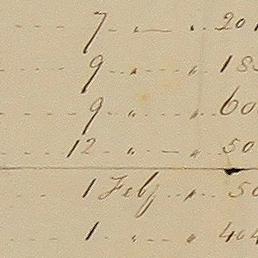 7 " " 201
9 " " 185
9 " " 60
12 " " 50
1 Feby " 50
1 " " 404